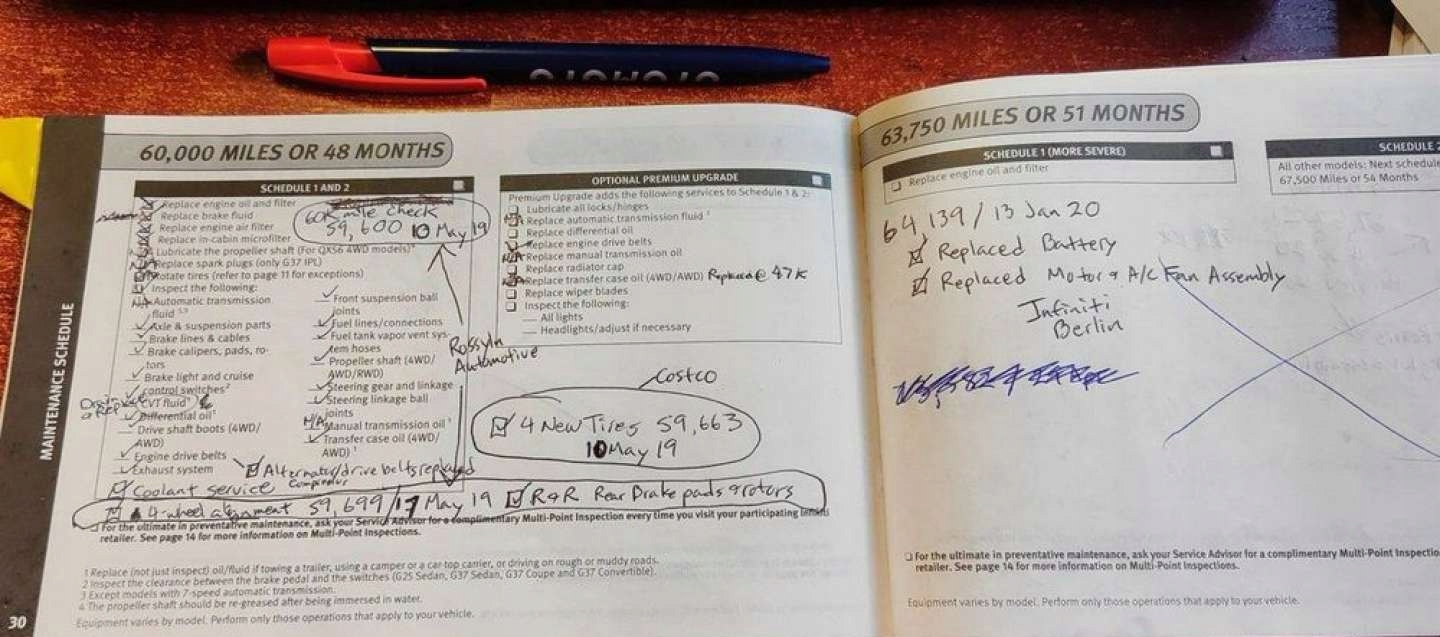 60,000 MILES OR 48 MONTHS
SCHEDULE 1 AND 2
Replace engine oil and filter
Replace brake fluid
Replace engine air filter
Replace in-cabin microfilter
60K mile check
59,600 10 May 19
Lubricate the propeller shaft (For QX56 4WD models)⁴
N/A Replace spark plugs (only G37 IPL)
Rotate tires (refer to page 11 for exceptions)
Inspect the following:
N/A Automatic transmission
fluid
Axle & suspension parts
Brake lines & cables
Brake calipers, pads, ro-
tors
Brake light and cruise
control switches²
CVT fluid¹
Differential oil¹
Drive shaft boots (4WD/
AWD)
Engine drive belts
Exhaust system
Front suspension ball
joints
Fuel lines/connections
Fuel tank vapor vent sys-
tem hoses
Propeller shaft (4WD/
AWD/RWD)
Steering gear and linkage
Steering linkage ball
joints
N/A Manual transmission oil¹
Transfer case oil (4WD/
AWD)¹
Rosslyn
Automotive
Alternator/drive belts replaced
Coolant service
4-wheel alignment 59,699/17 May 19 R&R Rear Brake pads & rotors
For the ultimate in preventative maintenance, ask your Service Advisor for a complimentary Multi-Point Inspection every time you visit your participating Infiniti
retailer. See page 14 for more information on Multi-Point Inspections.
1 Replace (not just inspect) oil/fluid if towing a trailer, using a camper or a car top carrier, or driving on rough or muddy roads.
2 Inspect the clearance between the brake pedal and the switches (G25 Sedan, G37 Sedan, G37 Coupe and G37 Convertible).
3 Except models with 7-speed automatic transmission.
4 The propeller shaft should be re-greased after being immersed in water.
Equipment varies by model. Perform only those operations that apply to your vehicle.
30
MAINTENANCE SCHEDULE
OPTIONAL PREMIUM UPGRADE
Premium Upgrade adds the following services to Schedule 1 & 2:
Lubricate all locks/hinges
N/A Replace automatic transmission fluid
Replace differential oil
Replace engine drive belts
N/A Replace manual transmission oil
Replace radiator cap
N/A Replace transfer case oil (4WD/AWD) Replaced @ 47K
Replace wiper blades
Inspect the following:
All lights
Headlights/adjust if necessary
Costco
4 New Tires 59,663
10 May 19
63,750 MILES OR 51 MONTHS
SCHEDULE 1 (MORE SEVERE)
Replace engine oil and filter
SCHEDULE 2
All other models: Next schedule
67,500 Miles or 54 Months
64,139 / 13 Jan 20
Replaced Battery
Replaced Motor & A/C Fan Assembly
Infiniti
Berlin
For the ultimate in preventative maintenance, ask your Service Advisor for a complimentary Multi-Point Inspectio
retailer. See page 14 for more information on Multi-Point Inspections.
Equipment varies by model. Perform only those operations that apply to your vehicle.